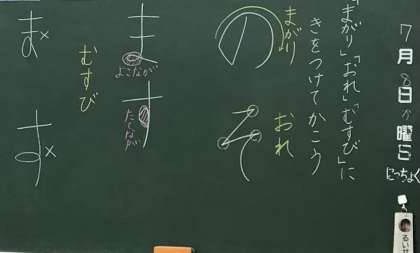 7月8日か曜日
にっちょく
るいせ
「まがり」「おれ」「むすび」に
きをつけてかこう
まがり
の
おれ
そ
ま
よこなが
す
たてなが
むすび
ま×
す×